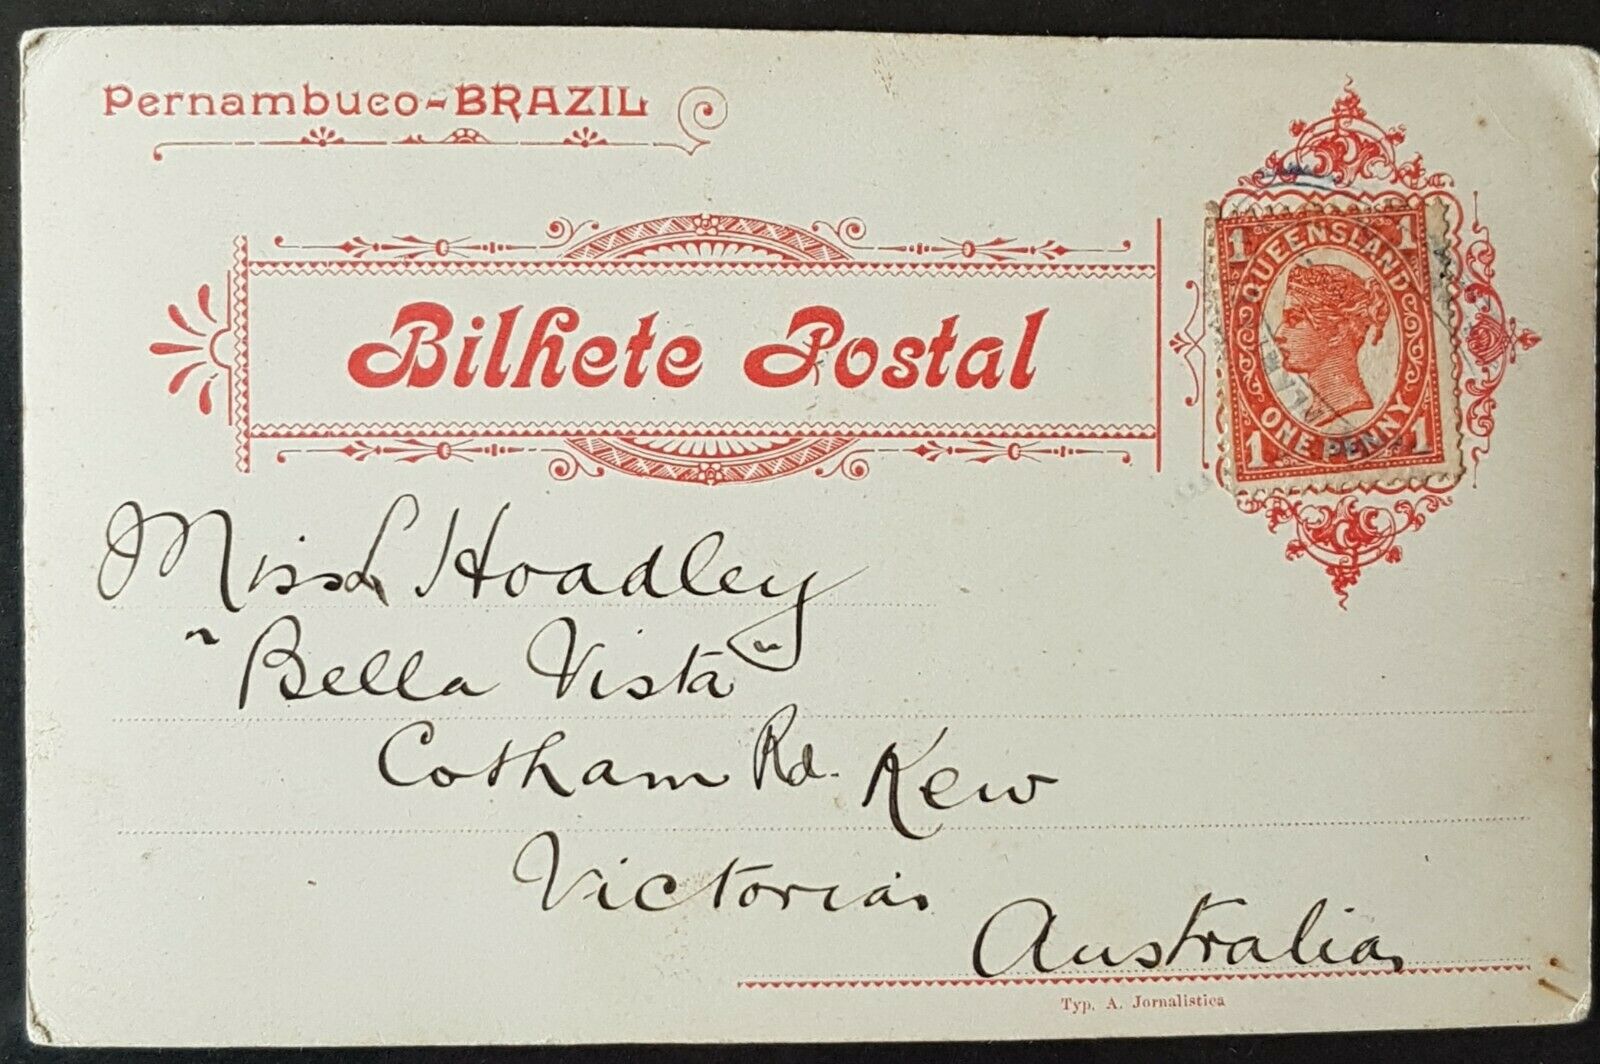 Pernambuco-BRAZIL
Bilhete Postal
1 QUEENSLAND 1
1 ONE PENNY 1
Miss L Hoadley
"Bella Vista"
Cotham Rd. Kew
Victoria.
Australia.
Typ. A. Jornalistica